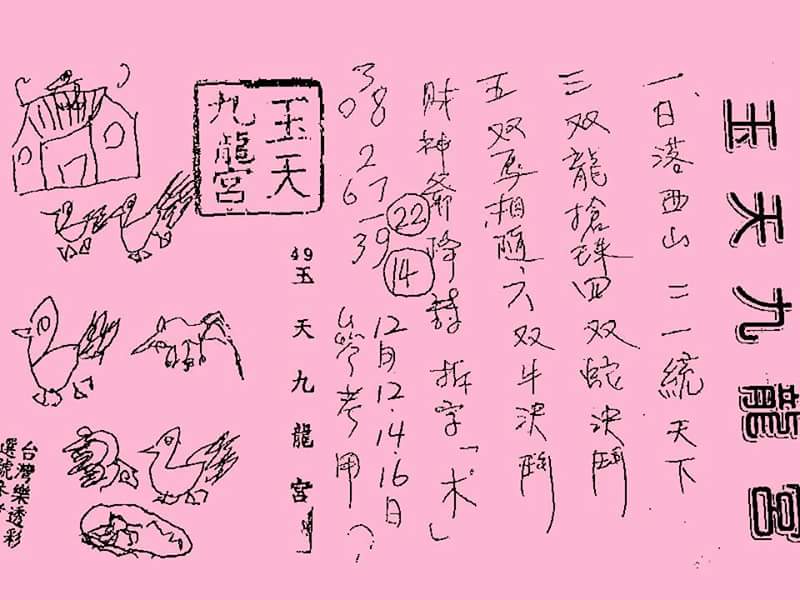 玉天九龍宮
一、日落西山 二一統天下
三双龍搶珠四双蛇決鬥
五双馬相隨六双牛決鬥
財神爺降詩 拆字「术」
38 0 2 67 39
22
14
12月12.14.16日
參考用
玉天
九龍宮
49
玉天九龍宮
台灣樂透彩
選號參考